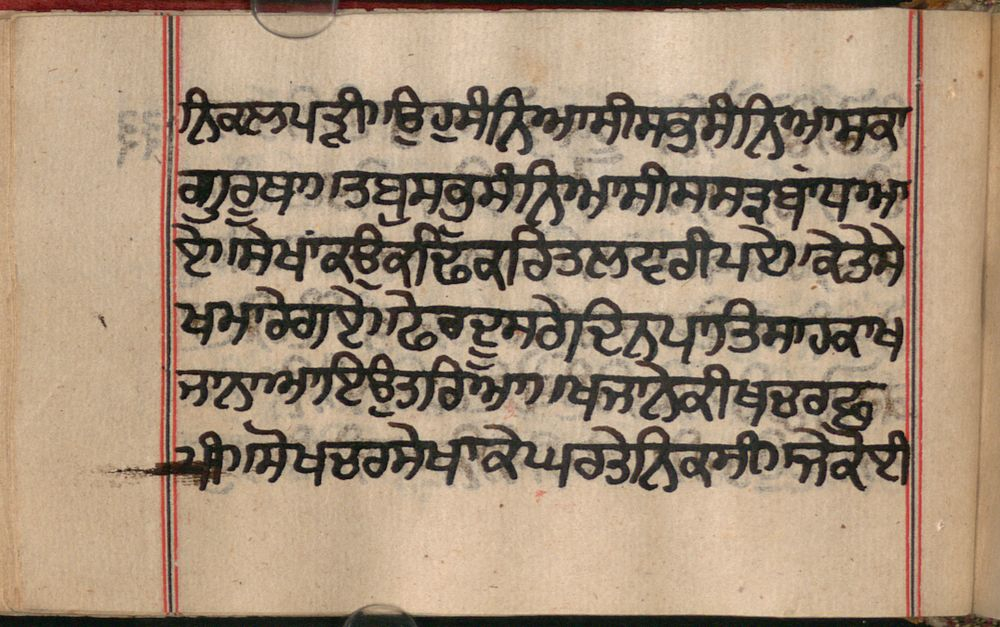 ਨਿਕਲਪੜੀ॥ਉਹੁਸੰਨਿਆਸੀਸਭੁਸੰਨਿਆਸਕਾ
ਗੁਰੂਥਾ॥ਤਬੁਸਭੁਸੰਨਿਆਸੀਸਸਤ੍ਰਬਾਂਧਆ
ਏ॥ਸੇਖਾਂਕਉਕਢਿਕਰਿਤਲਵਾਰੀਪਏ॥ਕੇਤੇਸੇ
ਖਮਾਰੇਗਏ॥ਫੇਰਦੂਸਰੇਦਿਨਪਾਤਿਸਾਹਕਾਖ
ਜਾਨਾਆਇਉਤਰਿਆ॥ਖਜਾਨੇਕੀਖਚਰਛੁ
ਪੀ॥ਸੋਖਚਰਸੇਖਾਂਕੇਘਰਤੇਨਿਕਸੀ॥ਜੋਕੋਈ